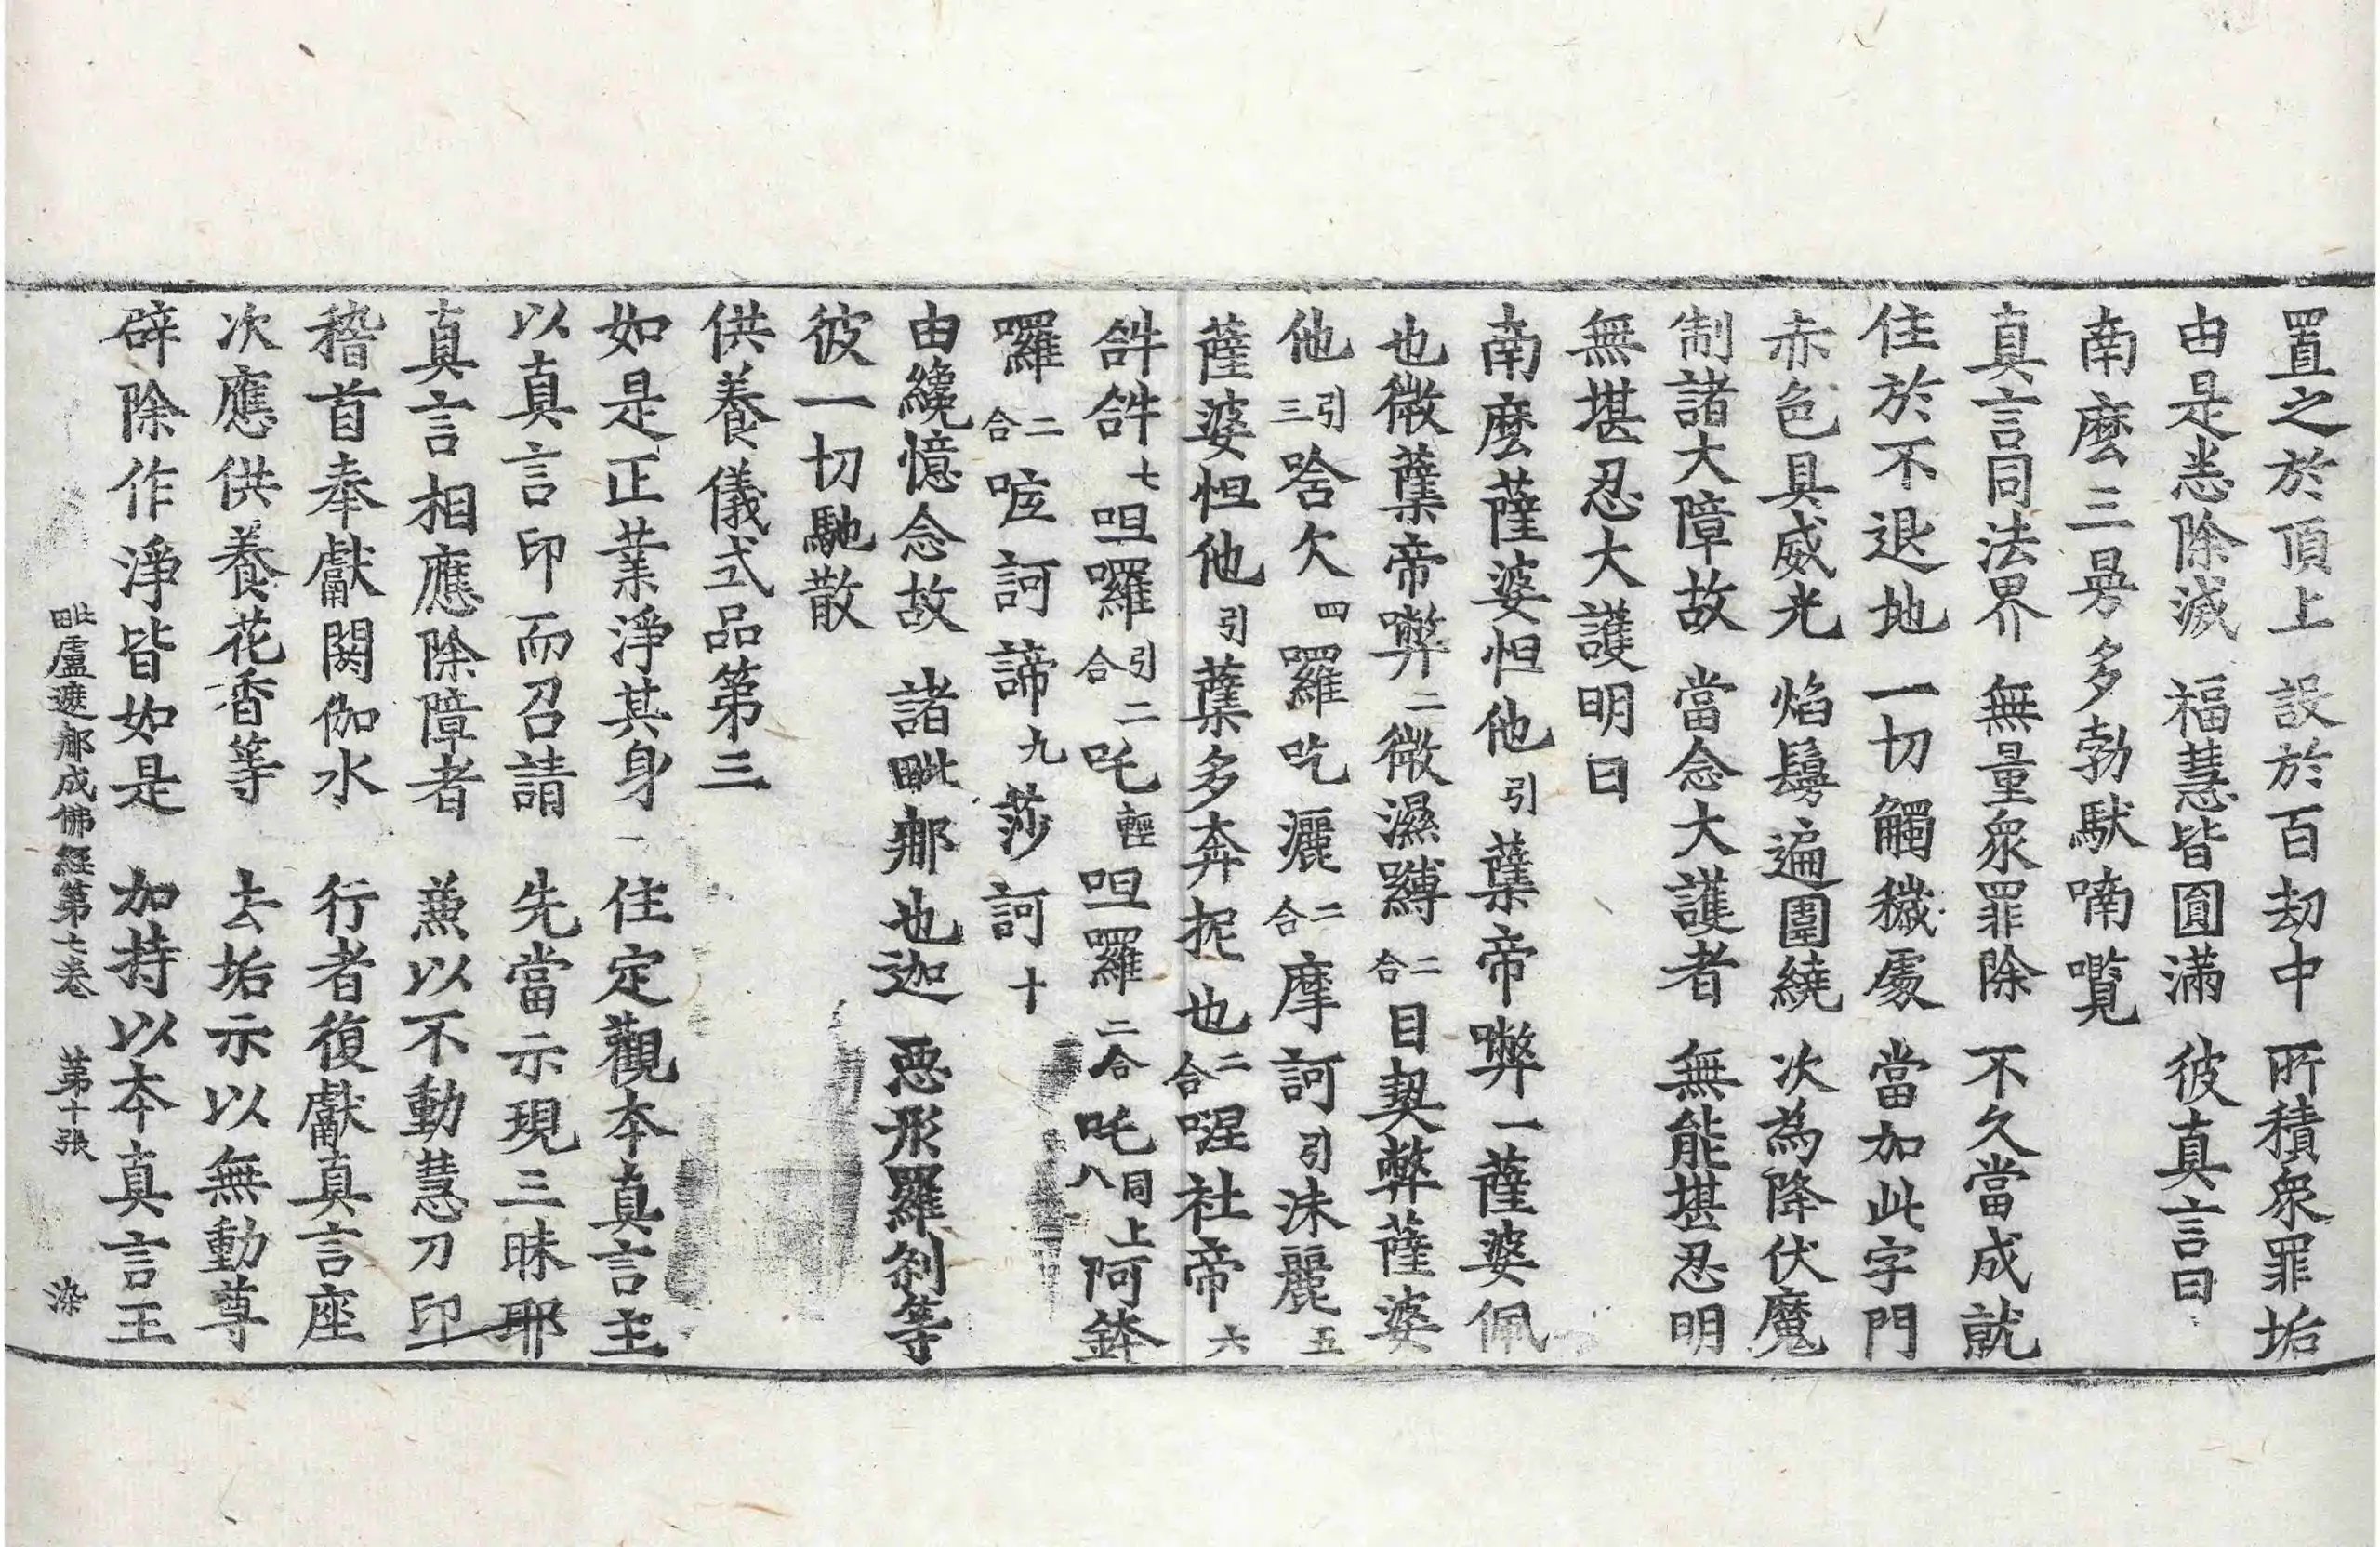 置之於頂上 設於百劫中 所積衆罪垢
由是悉除滅 福慧皆圓滿 彼真言曰
南麽三曼多勃馱喃嚂
真言同法界 無量衆罪除 不久當成就
住於不退地 一切觸穢處 當加此字門
赤色具威光 焰鬘遍圍繞 次為降伏魔
制諸大障故 當念大護者 無能堪忍明
無堪忍大護明曰
南麽薩婆怛他引蘗帝弊一薩婆佩
也微蘗帝弊二微濕嚩二合目契弊薩婆
他引三唅欠四囉吃灑二合摩訶引沬麗五
薩婆怛他引蘗多奔抳也二合𡁠社帝六
𤙖𤙖七呾囉引二合二吒輕呾囉二合吒同上八阿鉢
囉二合㗌訶諦九莎訶十
由纔憶念故 諸毗那也迦 惡形羅剎等
彼一切馳散
供養儀式品第三
如是正業淨其身 住定觀本真言主
以真言印而召請 先當示現三昧耶
真言相應除障者 兼以不動慧刀印
稽首奉獻閼伽水 行者復獻真言座
次應供養花香等 去垢示以無動尊
辟除作淨皆如是 加持以本真言王
毗盧遮那成佛經第七卷 第十張 染